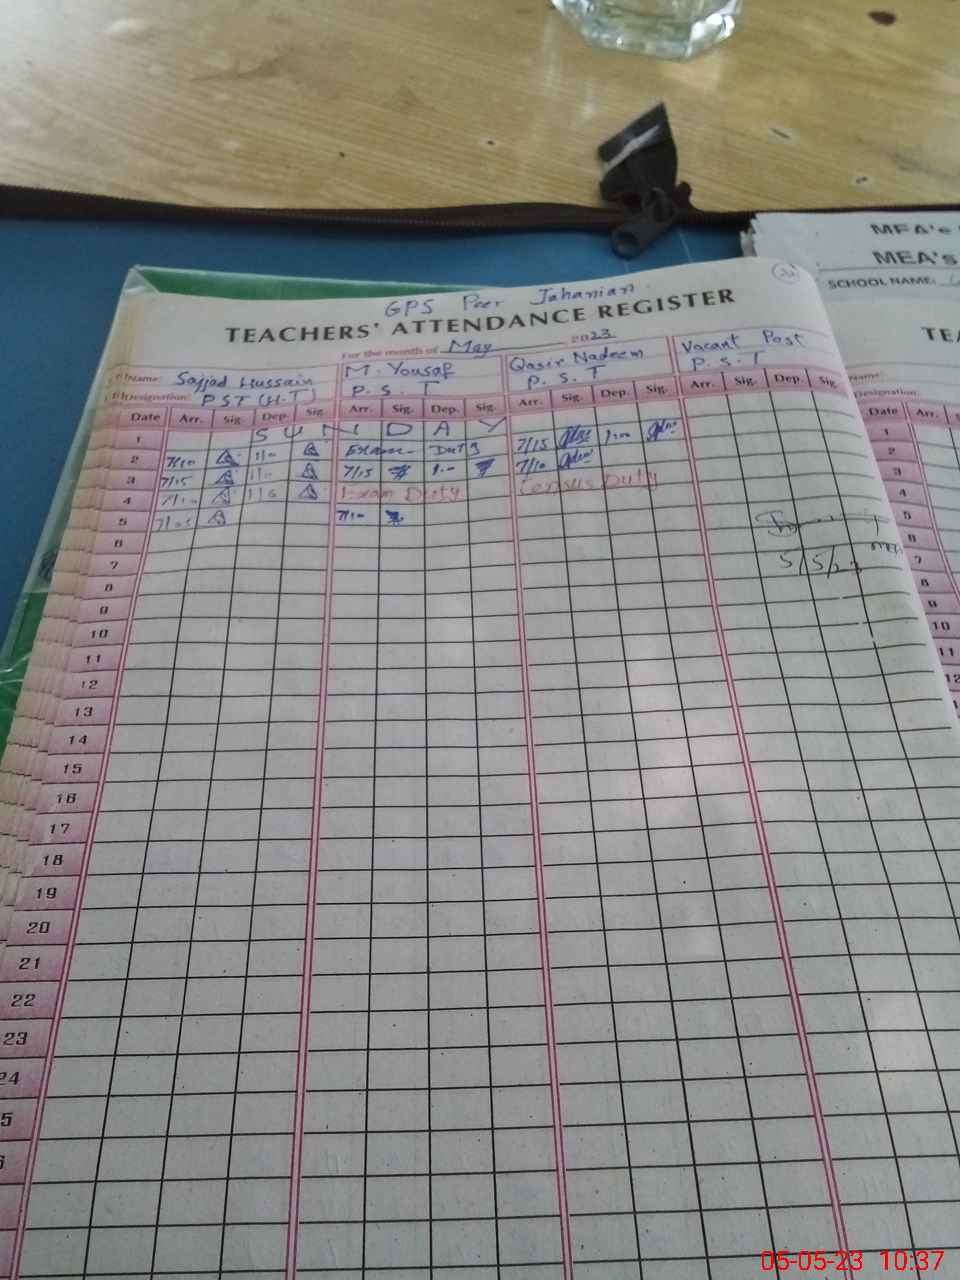 MEA's
MEA's
SCHOOL NAME:
GPS Peer Jahanian
TEACHERS' ATTENDANCE REGISTER
For the month of May 2023
Name: Sajjad Hussain M. Yousaf Qasir Nadeem Vacant Post
Designation: PST (H.T) P.S.T P.S.T P.S.T
Date Arr. Sig. Dep. Sig. Arr. Sig. Dep. Sig. Arr. Sig. Dep. Sig. Arr. Sig. Dep. Sig.
1 S U N D A Y
2 7/10 1/10 Exam Duty 7/15 1:00
3 7/15 1/10 7/15 1:00 7/10
4 7/10 1/10 Exam Duty Census Duty
5 7/05 7/10
6
7
8
9
10
11
12
13
14
15
16
17
18
19
20
21
22
23
24
5/5/23
MEA
TE
Name:
Designation:
Date Arr. S
1
2
3
4
5
6
7
8
9
10
11
12
05-05-23 10:37